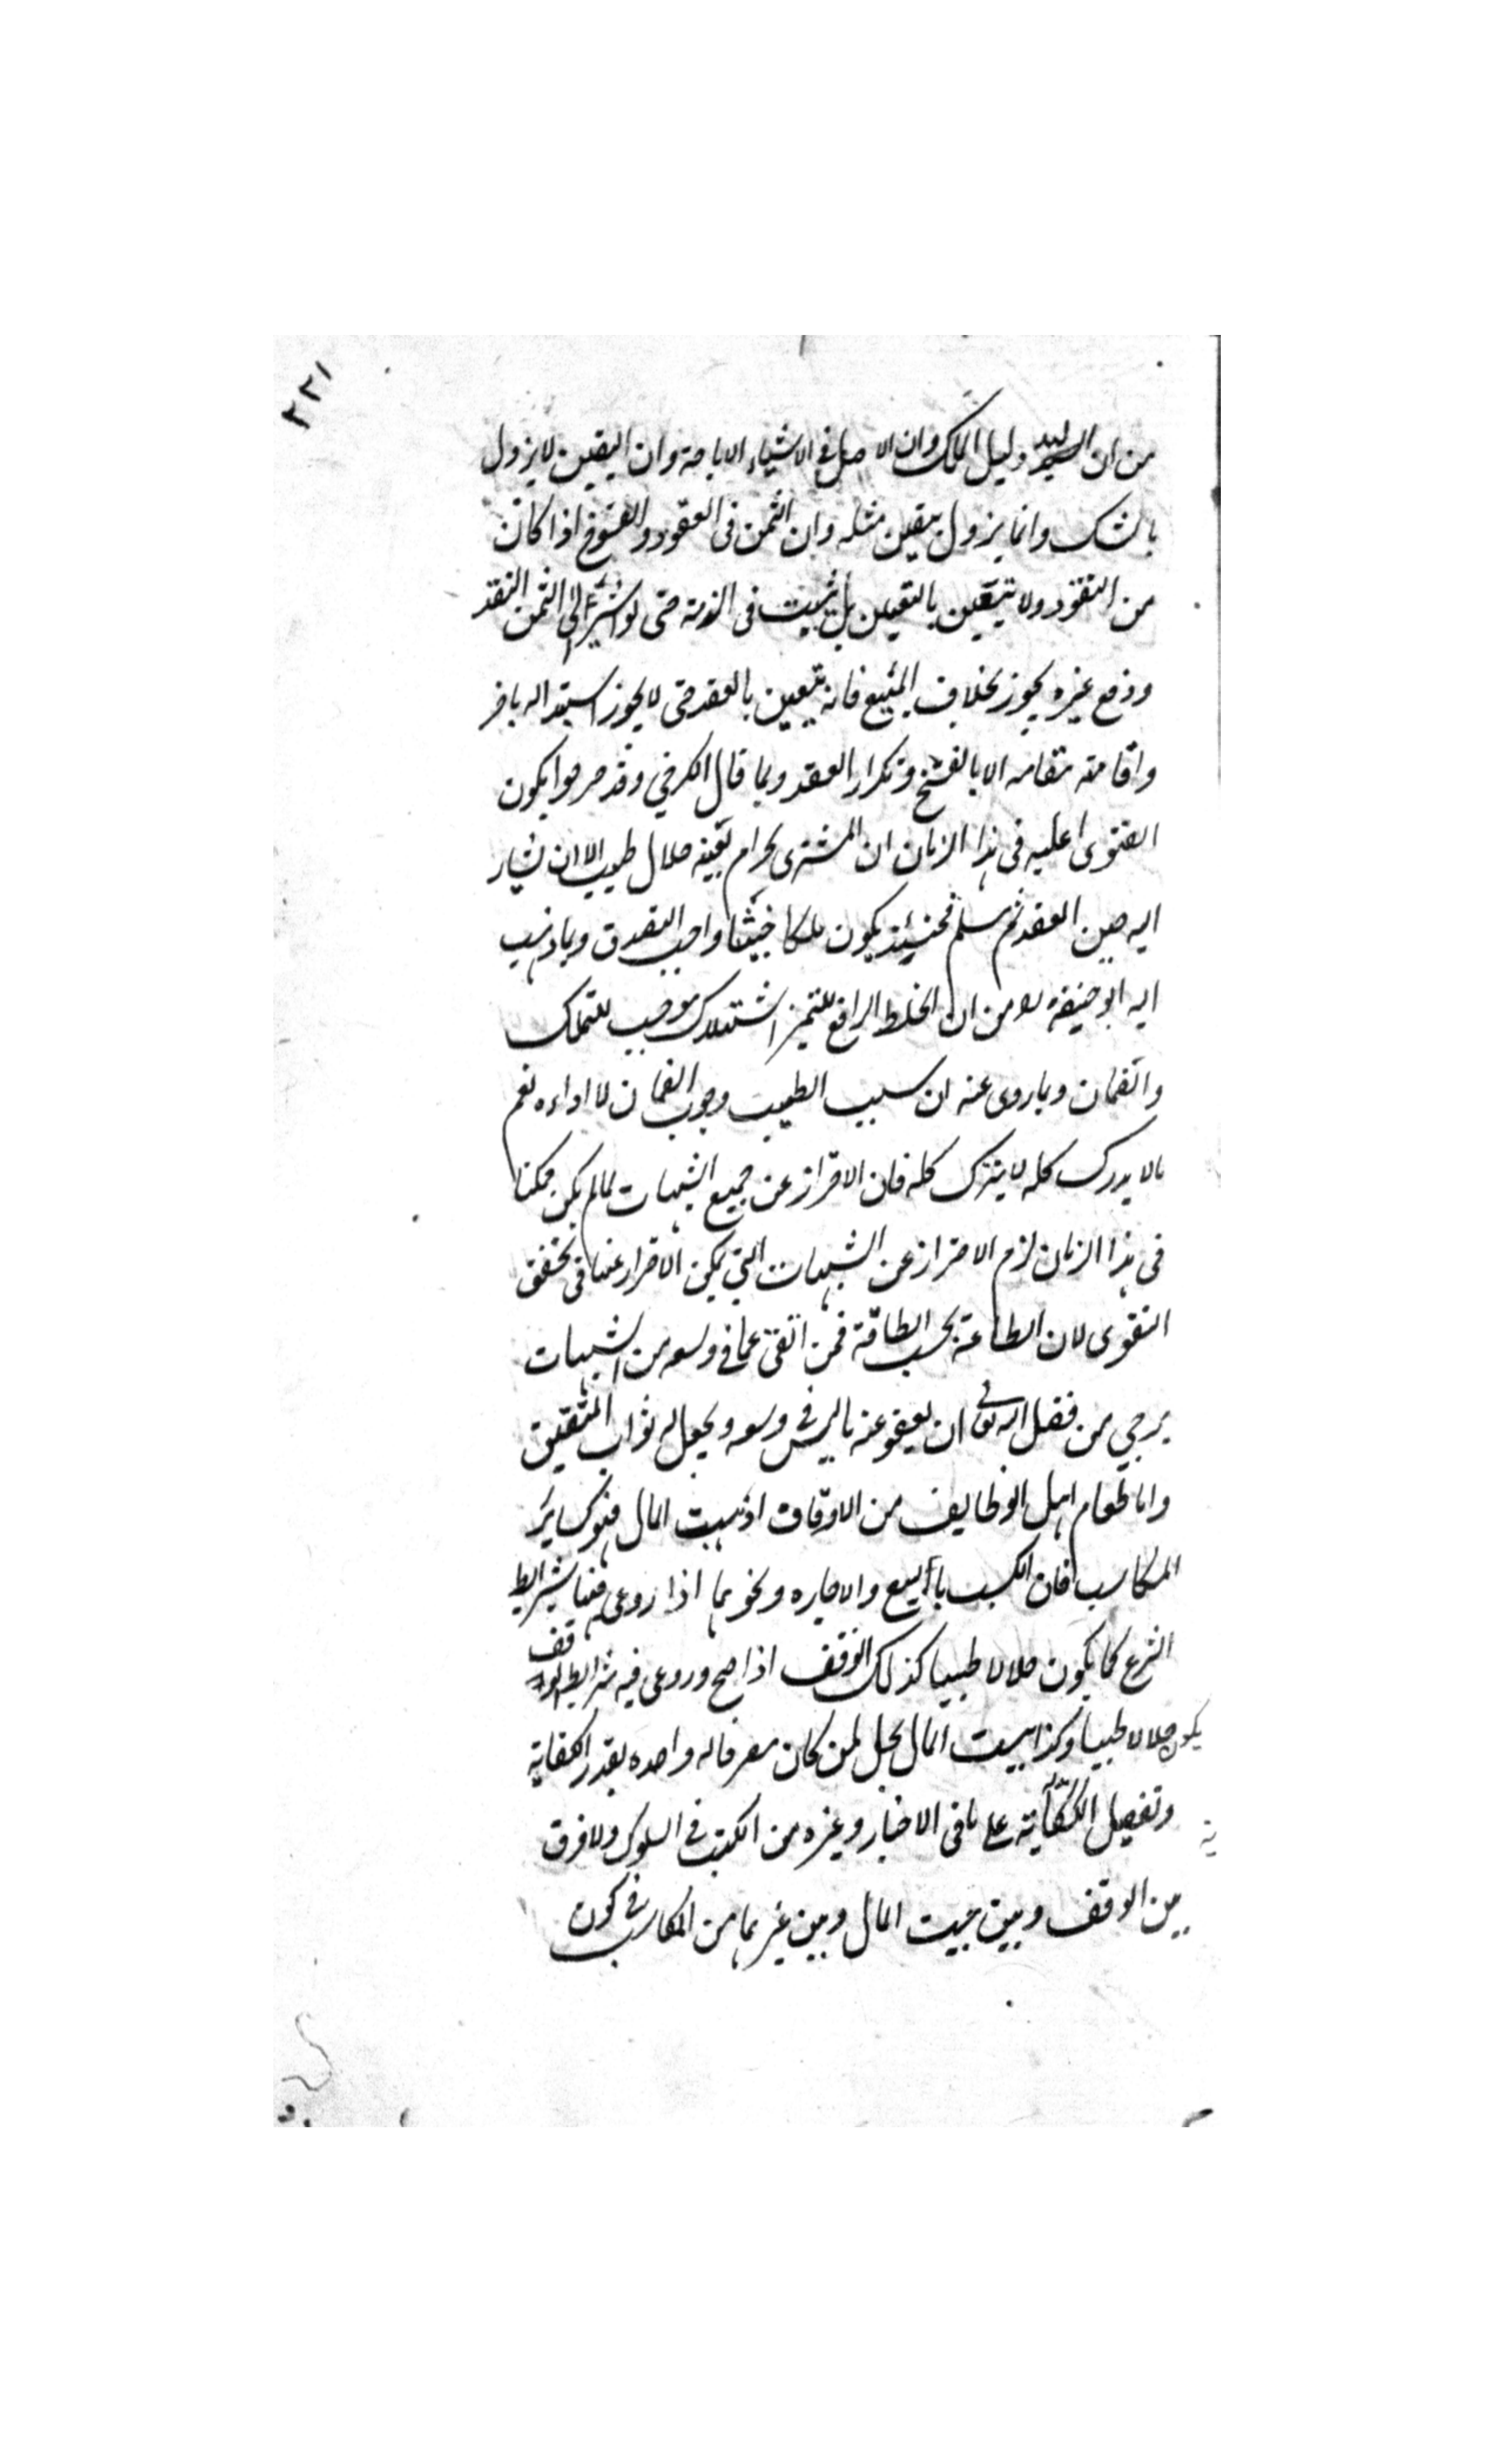 ٢٢١
من ان اليد دليل الملك وان الاصل فى الاشياء الاباحة وان اليقين لا يزول
بالشك وانما يزول بيقين مثله وان الثمن فى العقود والفسوخ اذا كان
من النقود ولا يتعين بالتعيين بل يثبت فى الذمة حتى لو اشير الى الثمن النقد
ودفع غيره يجوز بخلاف المبيع فانه يتعين بالعقد حتى لا يجوز استبداله باخر
واقامته مقامه الا بالفسخ وتكرار العقد وبما قال الكرخي وقد صرحوا بكون
الفتوى عليه فى هذا الزمان ان المشترى بحرام بعينه حلال طيب الا ان يشار
اليه حين العقد ثم سلم فحينئذ يكون ملكا خبيثا واجب التصدق وبما ذهب
اليه ابو حنيفة من ان الخلط الرافع للتميز استهلاك موجب للتملك
والضمان وبما روى عنه ان سبب الطيب وجوب الضمان لا اداءه نعم
ما لا يدرك كله لا يترك كله فان الاحتراز عن جميع الشبهات لما لم يكن ممكنا
فى هذا الزمان لزم الاحتراز عن الشبهات التى يمكن الاحتراز عنها فى تحقق
التقوى لان الطاعة بحسب الطاقة فمن اتقى عما فى وسعه من الشبهات
يرجى من فضل الله تعالى ان يعفو عنه ما ليس فى وسعه ويجعل له ثواب المتقين
واما طعام اهل الوظايف من الاوقاف او بيت المال فهو كساير
المكاسب فان الكسب بالبيع والاجاره ونحوهما اذا روعى فيها شرايط
الشرع كما يكون حلالا طيبا كذلك الوقف اذا صح وروعى فيه شرايط الواقف
يكون حلالا طيبا وكذا بيت المال يحل لمن كان مصرفا له واخذه بقدر الكفاية
وتفصيل الكفاية على ما فى الاختيار وغيره من الكتب فى السلوك ولا فرق
بين الوقف وبين بيت المال وبين غيرهما من المكاسب فى كون